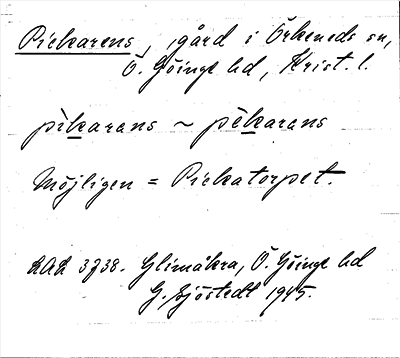 Pickarens, gård i Örkeneds sn,
Ö. Göinge hd, Krist. l.
pìkarans ~ pèkarans
Möjligen = Pickatorpet.
LAL 3738. Glimåkra, Ö. Göinge hd
G. Sjöstedt 1945.